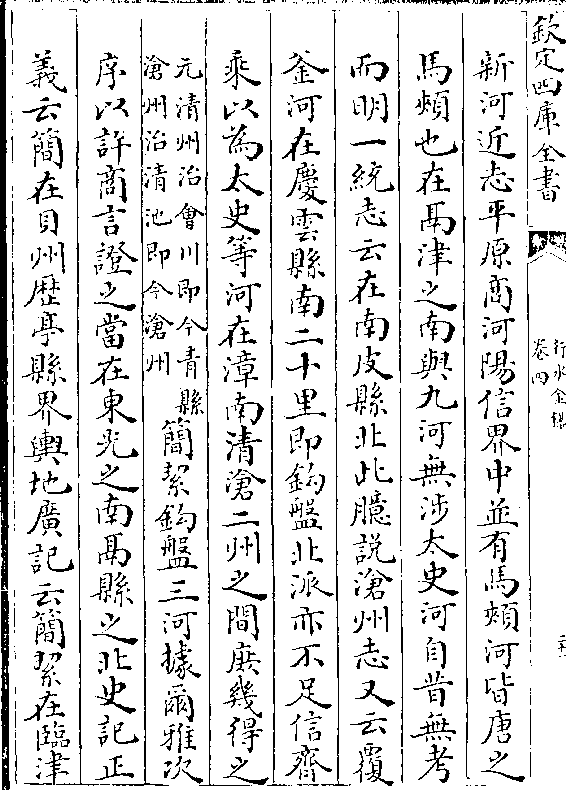 欽定四庫全書
行水金鑑
卷四
新河近志平原商河陽信界中並有馬頰河皆唐之
馬頰也在鬲津之南與九河無涉太史河自昔無考
而明一統志云在南皮縣北此臆說滄州志又云覆
釜河在慶雲縣南二十里即鈎盤北派亦不足信齊
乘以為太史等河在漳南清滄二州之間庶幾得之
元清州治會川即今青縣
滄州治清池即今滄州
簡絜鈎盤三河據爾雅次
序以許商言證之當在東光之南鬲縣之北史記正
義云簡在貝州歷亭縣界輿地廣記云簡絜在臨津